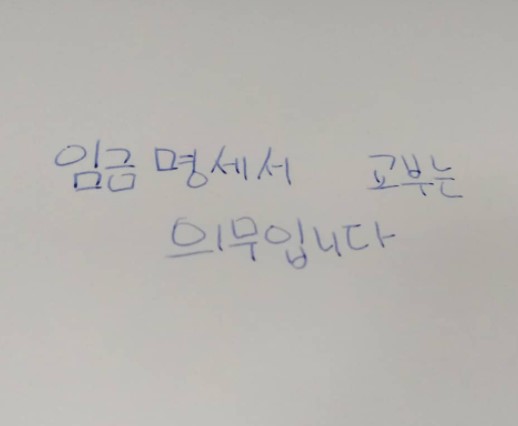 임금 명세서 교부는
의무입니다